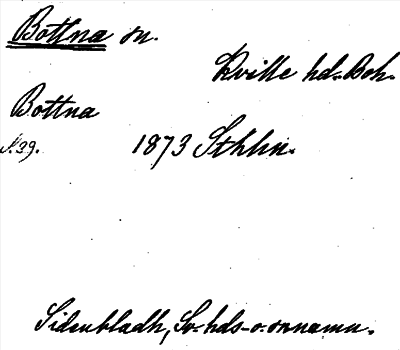 Bottna sn.
Kville hd. Boh.
Bottna
s. 39.
1873 Sthlm.
Sidenbladh, Sv. hds- o. snnamn.